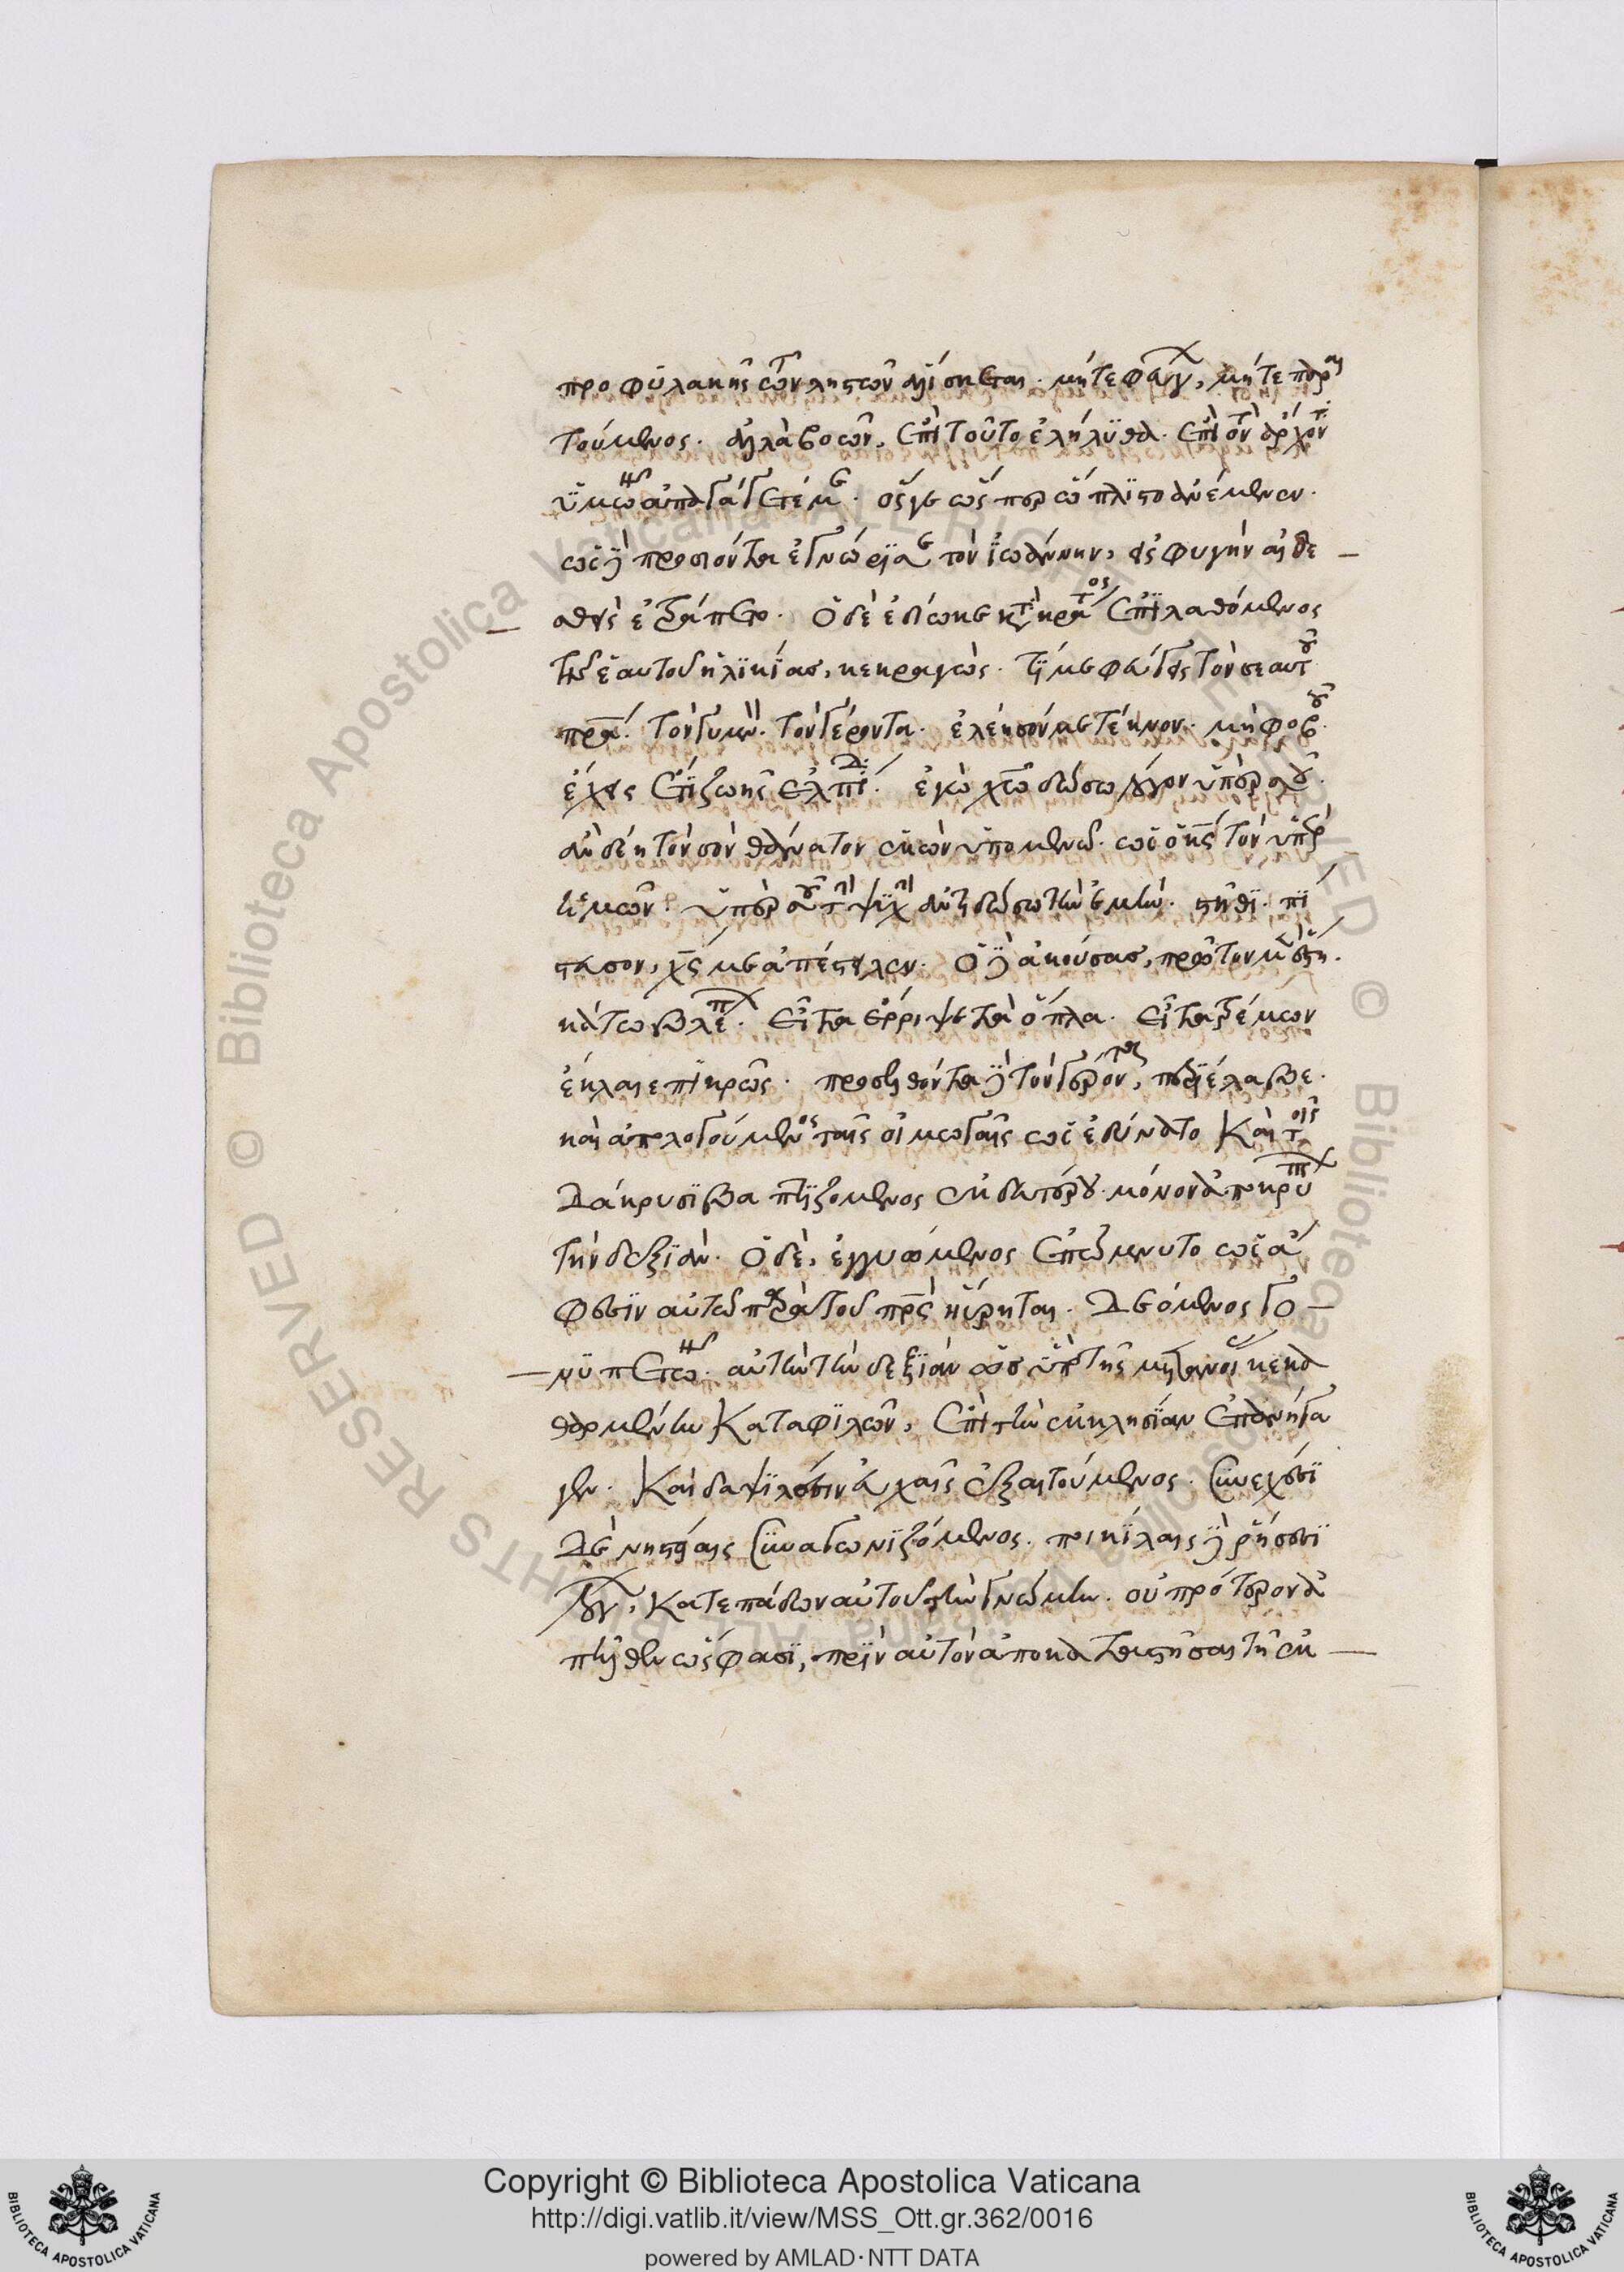 προφυλακῆς τῶν ληστῶν ἁλίσκεται. μήτε φεύγ, μήτε παραι
τούμενος. ἀλλὰ βοῶν, ἐπὶ τοῦτο ἐλήλϋθα. ἐπὶ τὸν ἄρχοντ
ὑμῶν ἀπαγάγετέ με. ὅς γε ὥσπερ ὥπλϊστο ἀνέμενεν.
ὡς δὲ προσιόντα ἐγνώρϊσε τὸν ἰωάννην, εἰς φυγὴν αἰδε
σθεὶς ἐτράπετο. ὁ δὲ ἐδίωκε κατὰ κράτος ἐπϊλαθόμενος
τῆς ἑαυτοῦ ἡλϊκΐας, κεκραγὼς. τΐ με φεύγεις τὸν σεαυτοῦ
πρα. τὸν γυμνὸν. τὸν γέροντα. ἐλέησόν με τέκνον. μὴ φοβοῦ.
ἔχεις ἔτϊ ζωῆς ἐλπίδ. ἐγὼ χῶ δώσω λόγον ὑπὲρ σοῦ.
ἂν δέῃ τὸν σὸν θάνατον ἑκὼν ὑπομενῶ. ὡς ὁ κς τὸν ὑπὲρ
ἡμῶν. ὑπὲρ σοῦ τὴν ψϋχὴν ἀντιδώσω τὴν ἐμὴν. στῆθϊ. πΐ
στευσον, χς με ἀπέστειλεν. ὁ δὲ ἀκούσας, πρῶτον μὲν ἔστη.
κάτω βλέπ. εἶτα ἔρριψε τὰ ὅπλα. εἶτα τρέμων
ἔκλαιε πϊκρῶς. προσελθόντα δὲ τὸν γέροντα, περϊέλαβε.
καὶ ἀπολογούμενος ταῖς οἰμωγαῖς ὡς ἐδύνατο καὶ τοῖς
δάκρυσϊ βαπτϊζόμενος ἐκ δευτέρου. μόνον ἀποκρύπτ
τὴν δεξϊὰν. ὁ δὲ, ἐγγυώμενος ἐπώμνυτο ὡς ἄ
φεσϊν αὐτῶ παρὰ τοῦ πρς ηὕρηται. δεόμενος γο
νϋπετῶν. αὐτὴν τὴν δεξϊὰν ὡς ὑπὸ τῆς μετανοίας κεκα
θαρμένην καταφϊλῶν, ἐπὶ τὴν ἐκκλησΐαν ἐπανήγα
γεν. καὶ δαψϊλέσϊν εὐχαῖς ἐξαιτούμενος. συνεχέσϊ
δὲ νηστείαις συναγωνϊζόμενος. ποικΐλαις δὲ ῥήσεσϊ
λόγων, κατεπάδων αὐτοῦ τὴν γνώμην. οὐ πρότερον ἀ
πῆλθεν ὥς φασϊ, πρϊν αὐτὸν ἀποκαταστῆσαι τῆ ἐκ
Copyright © Biblioteca Apostolica Vaticana
http://digi.vatlib.it/view/MSS_Ott.gr.362/0016
powered by AMLAD·NTT DATA